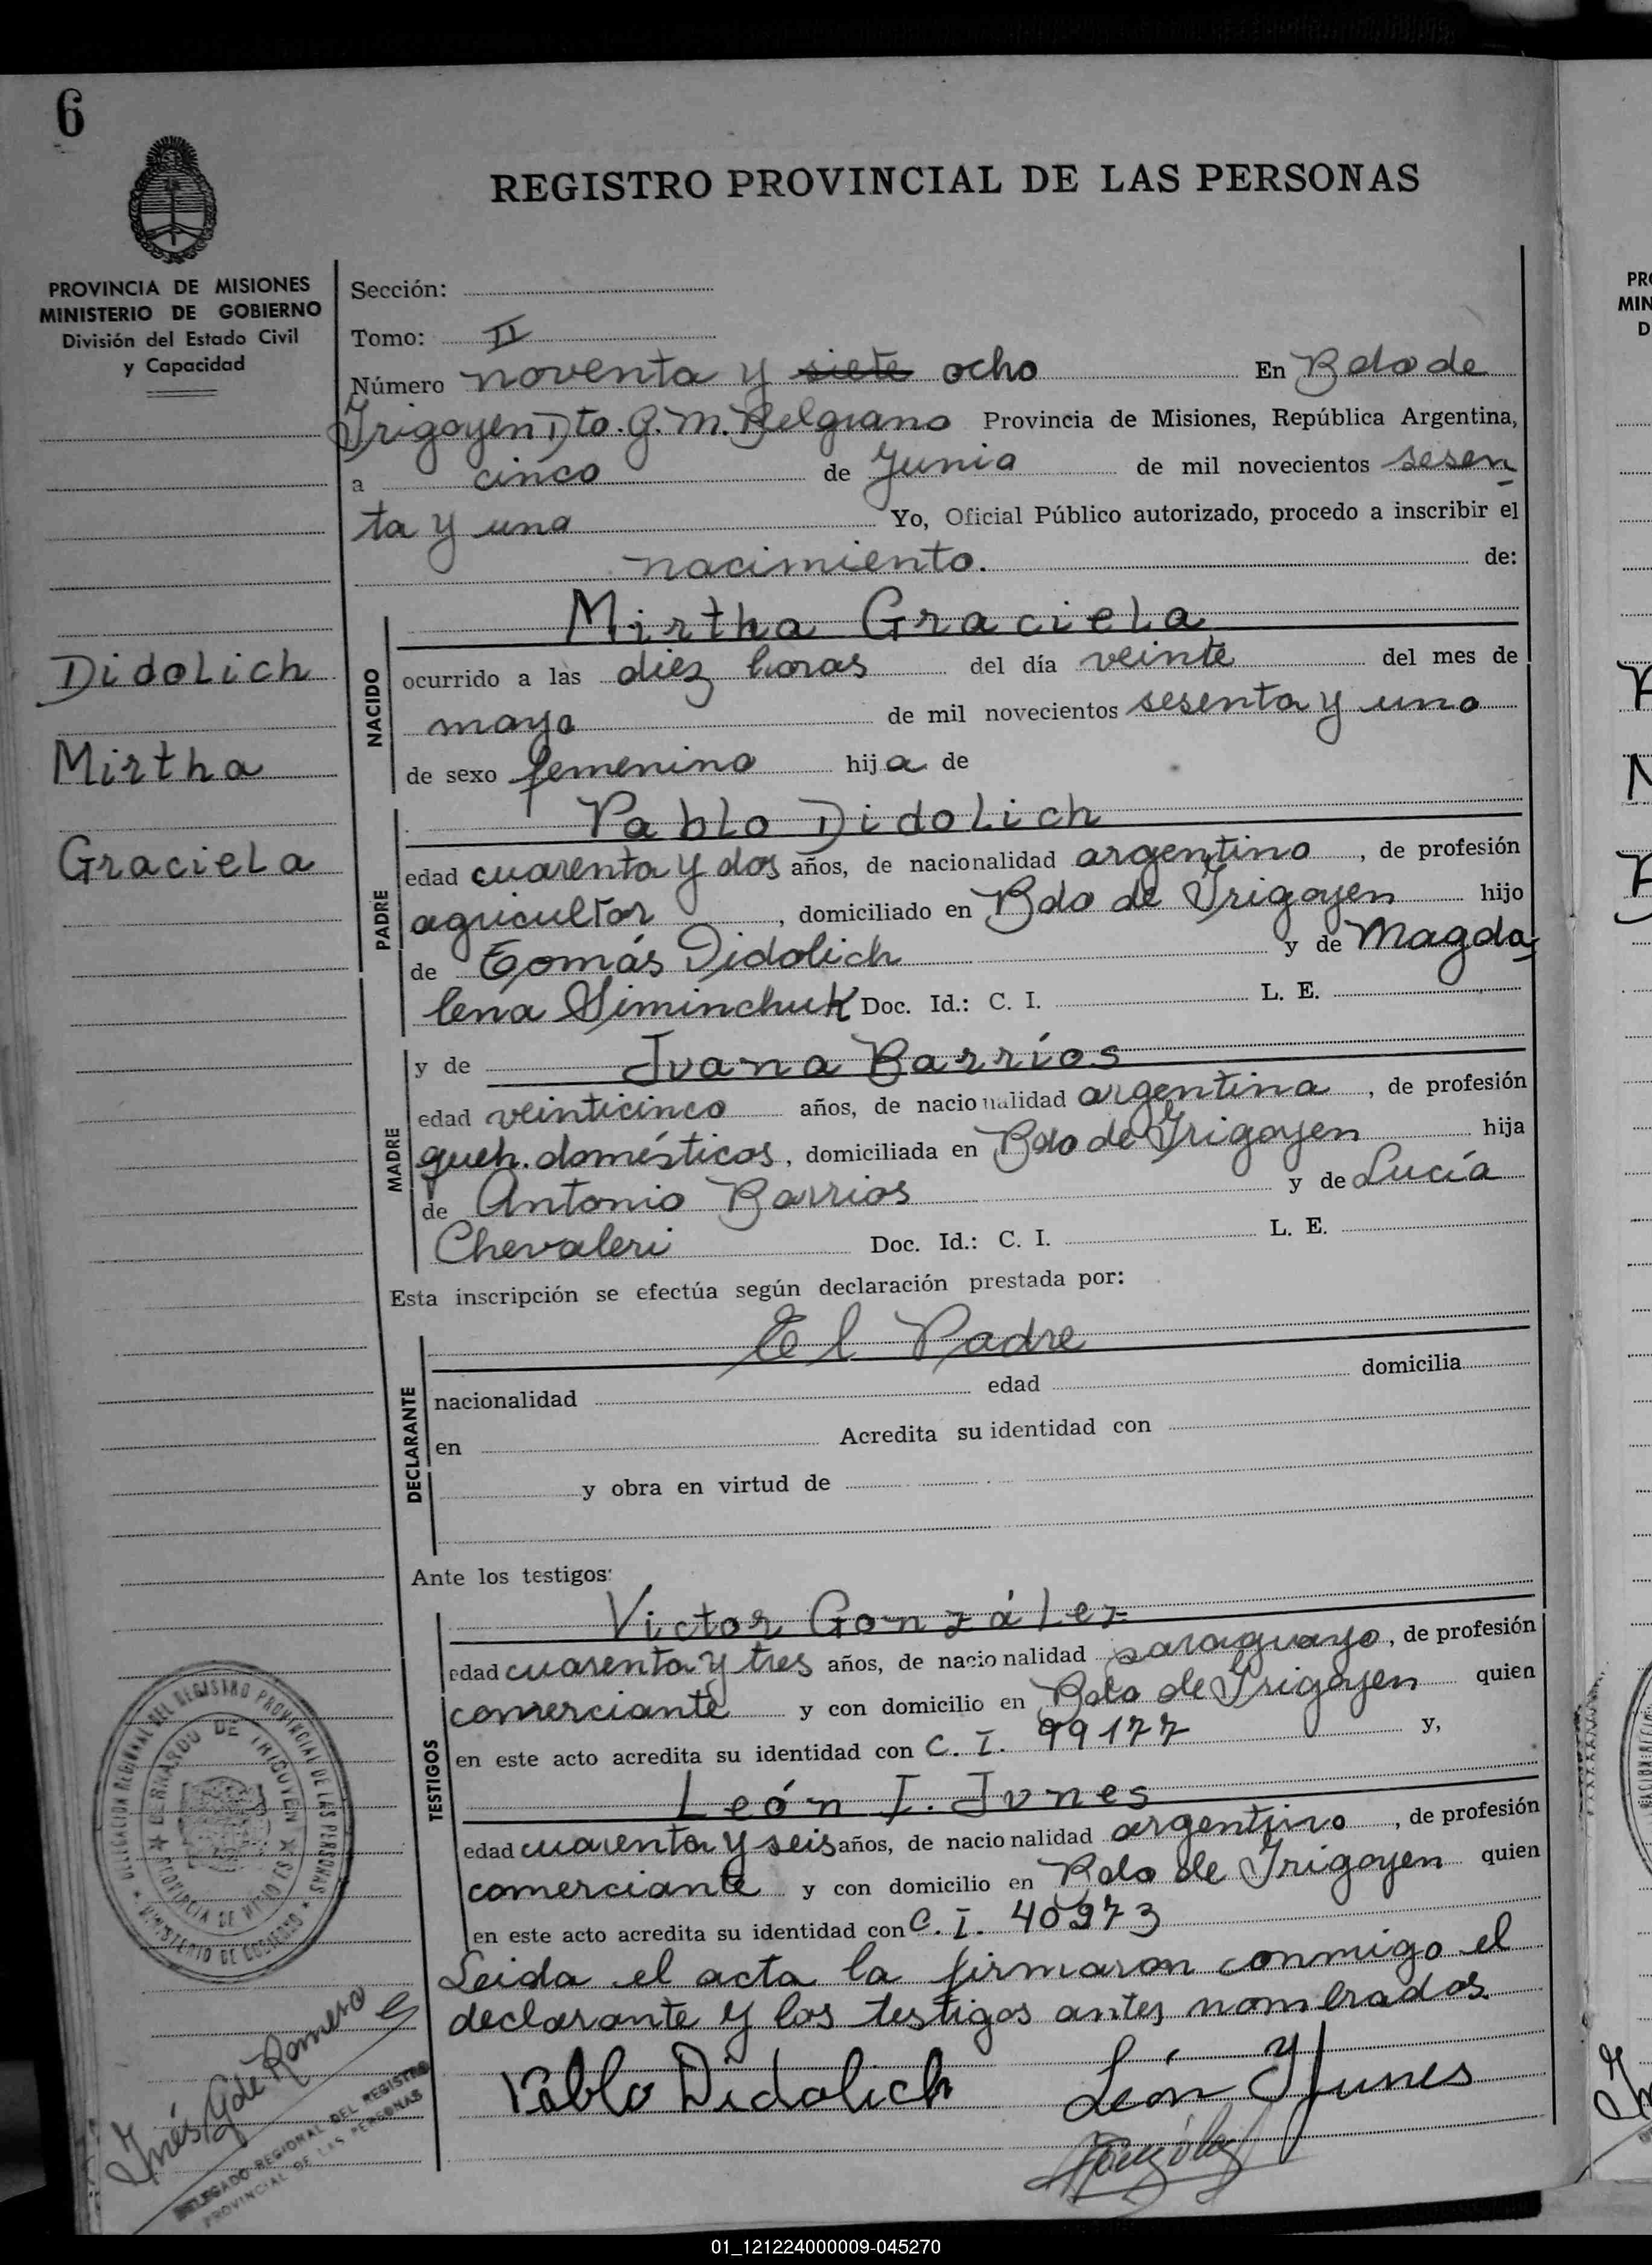 6
REGISTRO PROVINCIAL DE LAS PERSONAS
PROVINCIA DE MISIONES
MINISTERIO DE GOBIERNO
División del Estado Civil
y Capacidad
Didolich
Mirtha
Graciela
Sección:
Tomo: II
Número noventa y siete ocho En Bdo de
Irigoyen Dto. G. M. Belgrano Provincia de Misiones, República Argentina,
a cinco de Junio de mil novecientos sesen
ta y uno Yo, Oficial Público autorizado, procedo a inscribir el
nacimiento. de:
NACIDO
Mirtha Graciela
ocurrido a las diez horas del día veinte del mes de
mayo de mil novecientos sesenta y uno
de sexo femenino hija de
PADRE
Pablo Didolich
edad cuarenta y dos años, de nacionalidad argentino, de profesión
agricultor, domiciliado en Bdo de Irigoyen hijo
de Tomás Didolich y de Magda
lena Siminchuk Doc. Id.: C. I. L. E.
MADRE
y de Juana Barrios
edad veinticinco años, de nacionalidad argentina, de profesión
queh. domésticos, domiciliada en Bdo de Irigoyen hija
de Antonio Barrios y de Lucía
Chevaleri Doc. Id.: C. I. L. E.
Esta inscripción se efectúa según declaración prestada por:
DECLARANTE
El Padre
nacionalidad edad domicilia
en Acredita su identidad con
y obra en virtud de
Ante los testigos:
TESTIGOS
Victor González
edad cuarenta y tres años, de nacionalidad paraguayo, de profesión
comerciante y con domicilio en Bdo de Irigoyen quien
en este acto acredita su identidad con C. I. 99177 y,
León I. Junes
edad cuarenta y seis años, de nacionalidad argentino, de profesión
comerciante y con domicilio en Bdo de Irigoyen quien
en este acto acredita su identidad con C. I. 40973
Leida el acta la firmaron conmigo el
declarante y los testigos antes nombrados.
Pablo Didolich León I Junes
González
DELEGACION REGIONAL DEL REGISTRO PROVINCIAL DE LAS PERSONAS
MINISTERIO DE GOBIERNO
BERNARDO DE IRIGOYEN
PROVINCIA DE MISIONES
Inés G de Romero
DELEGADO REGIONAL DEL REGISTRO
PROVINCIAL DE LAS PERSONAS
01_121224000009-045270